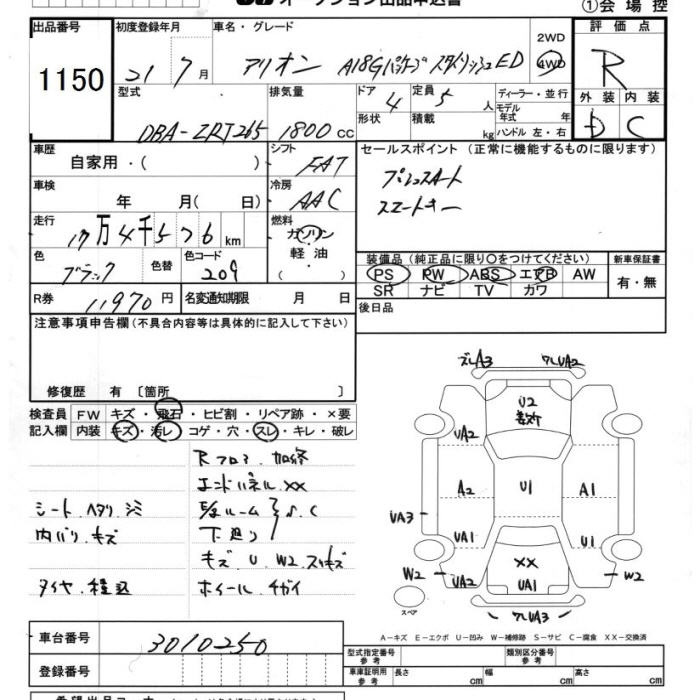 オークション出品申込書
①会場控
出品番号 初度登録年月 車名・グレード 2WD 4WD 評価点
1150 21年7月 アリオン A18Gパッケージ スタイリッシュED R
型式 排気量 ドア 4 定員 5人 ディーラー・並行 外装 内装
DBA-ZRT265 1800cc 形状 積載 kg モデル年式 年 ハンドル 左・右 D C
車歴 シフト セールスポイント (正常に機能するものに限ります)
自家用・( ) FAT プッシュスタート
車検 冷房 スマートキー
年 月( 日) AAC
走行 燃料
17万4千576km ガソリン
軽油
・( )
色 色替 色コード 装備品 (純正品に限り○をつけてください) 新車保証書
ブラック 209 PS PW ABS エアB AW 有・無
SR ナビ TV カワ
R券 11970円 名変通知期限 月 日 後日品
注意事項申告欄(不具合内容等は具体的に記入して下さい)
修復歴 有 〔箇所 〕
検査員 FW キズ・飛石・ヒビ割・リペア跡・×要
記入欄 内装 キズ・汚レ・コゲ・穴・スレ・キレ・破レ
Rフロア.加修
エンドパネル.XX
シート.ヘタリ.シミ
ルーム S.C
内バリ.キズ 下廻り
キズ.U.W2.スリキズ
タイヤ.積込 ホイール.チガイ
ズレA3 ワレUA2
U2
UA2
A2 U1 A1
UA3
UA1 U1
XX
W2 UA2 UA1 W2
スペア
ワレUA3
A-キズ E-エクボ U-凹み W-補修跡 S-サビ C-腐食 XX-交換済
車台番号 3010250
型式指定番号 参考 類別区分番号 参考
登録番号 車庫証明用 参考 長さ cm 幅 cm 高さ cm